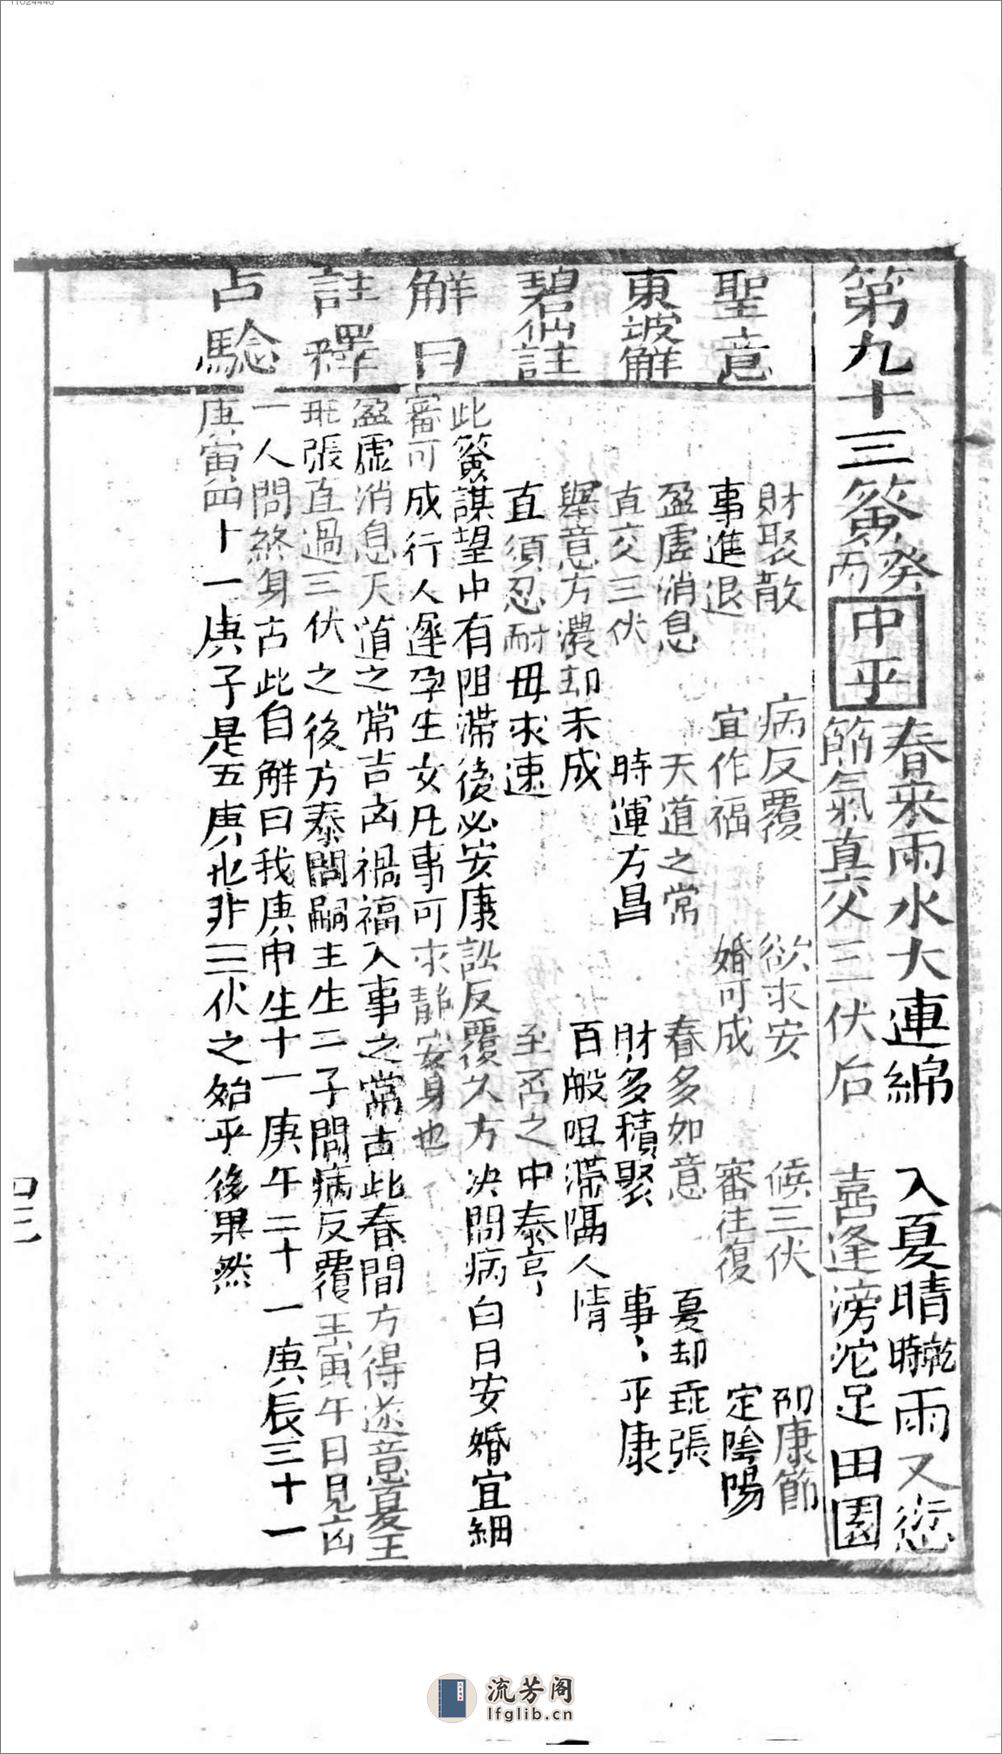 第九十三簽 癸丙 中平
春來雨水大連綿 入夏晴乾時雨又愆
節氣直交三伏后 喜逢滂沱足田園
聖意
財聚散 病反覆 欲求安 候三伏 卯康節
事進退 宜作福 婚可成 審往復 定陰陽
東坡解
盈虛消息 天道之常 春多如意 夏却乖張
直交三伏 時運方昌 財多積聚 事〻平康
碧仙註
舉意方濃却未成 百般咀滯隔人情
直須忍耐毋求速 至否之中泰亨
解曰
此簽謀望中有阻滯後必安康訟反覆久方决問病白日安婚宜細
審可成行人遲孕生女凡事可求静安身也
註釋
盈虛消息天道之常吉凶禍福人事之常古此春間方得遂意夏主
乖張直過三伏之後方泰問嗣主生二子問病反覆壬寅午日見凶
占驗
一人問終身占此自解曰我庚申生十一庚午二十一庚辰三十一
庚寅四十一庚子是五庚也非三伏之始乎後果然
四三
流芳阁
lfglib.cn